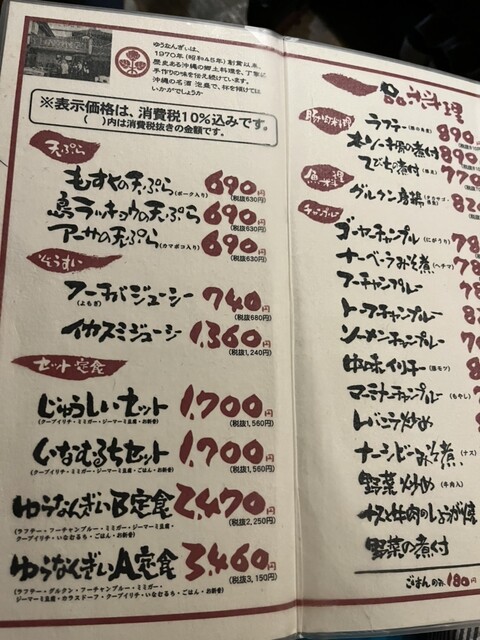 ゆうなんぎぃは、
1970年(昭和45年)創業以来、
歴史ある沖縄の郷土料理を、丁寧に
手作りの味を伝え続けています。
沖縄の名酒 泡盛で、杯を傾けては
いかがでしょうか
※表示価格は、消費税10%込みです。
( )内は消費税抜きの金額です。
天ぷら
もずくの天ぷら(ポーク入り) 690円
(税抜630円)
島ラッキョウの天ぷら 690円
(税抜630円)
アーサの天ぷら(カマボコ入り) 690円
(税抜630円)
ぞうすい
フーチバジューシー 740円
(よもぎ) (税抜680円)
イカスミジューシー 1,360円
(税抜1,240円)
セット・定食
じゅうしぃセット 1,700円
(クーブイリチ・ミミガー・ジーマーミ豆腐・お新香) (税抜1,560円)
いなむるちセット 1,700円
(クーブイリチ・ミミガー・ジーマーミ豆腐・ごはん・お新香) (税抜1,560円)
ゆうなんぎぃB定食 2,470円
(ラフテー・フーチャンプルー・ミミガー・ジーマーミ豆腐・
クーブイリチ・いなむるち・ごはん・お新香) (税抜2,250円)
ゆうなんぎぃA定食 3,460円
(税抜3,150円)
(ラフテー・グルクン・フーチャンプルー・ミミガー・
ジーマーミ豆腐・カラスドーフ・クーブイリチ・いなむるち・ごはん・お新香)
一品料理
豚肉料理
ラフテー(豚の角煮) 890
本ソーキ骨の煮付 890
てびちの煮付(豚足) 77
魚料理
グルクン唐揚 82
チャンプルー
ゴーヤーチャンプルー(にがうり) 78
ナーベーラみそ煮(ヘチマ) 78
フーチャンプルー 78
トーフチャンプルー
ソーメンチャンプルー
中味イリチー(豚モツ)
マーミナーチャンプルー(もやし)
レバニラ炒め
ナーシビーみそ煮(ナス)
野菜炒め(牛肉入)
ナスと牛肉のしょうが焼
野菜の煮付
ごはんのみ 180円